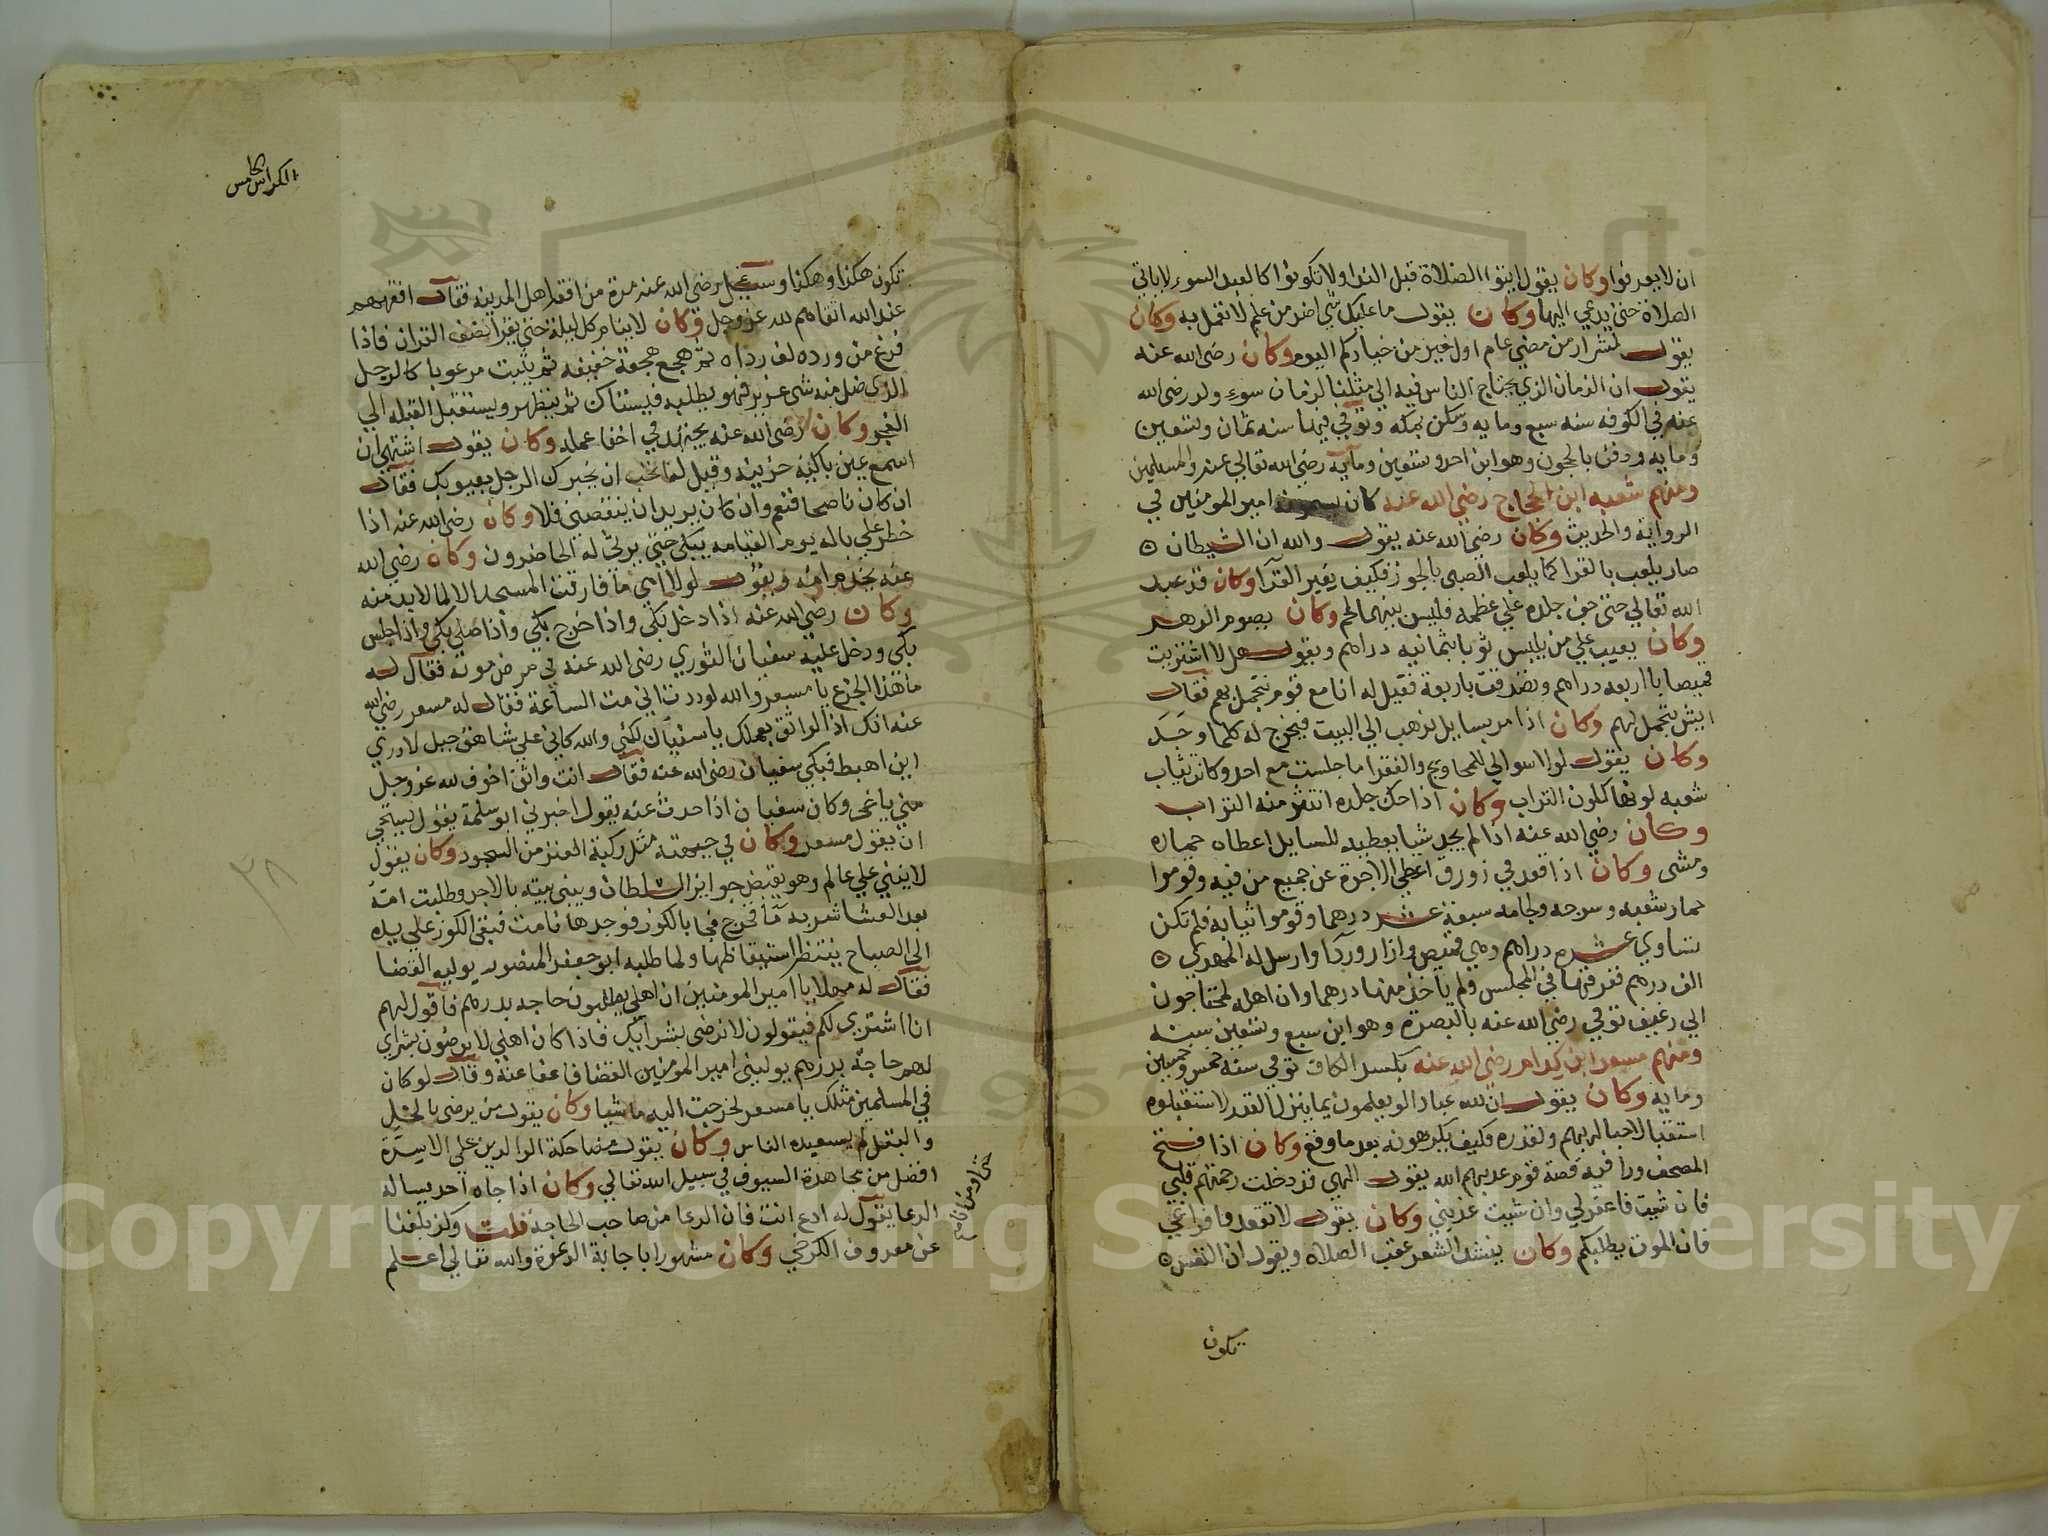 ان لا يعرفوا وكان يقول ايتوا الصلاة قبل الندا ولا تكونوا كالعبد السوء لا ياتي
الصلاة حتى يدعي اليها وكان يقول ما عليك شي اضر من علم لا تعمل به وكان
يقول لشرار من مضي عام اول خير من خياركم اليوم وكان رضي الله عنه
يقول ان الزمان الذي يحتاج الناس فيه الي مثلنا لزمان سوء ولد رضي الله
عنه في الكوفه سنه سبع ومايه وسكن بمكه وتوفي فيها سنه ثمان وتسعين
ومايه ودفن بالحجون وهو ابن احد وتسعين ومايه رضي الله تعالي عنه والمسلمين
ومنهم شعبه ابن الحجاج رضي الله عنه كان امير المومنين في
الروايه والحديث وكان رضي الله عنه يقول والله ان الشيطان
صار يلعب بالقرا كما يلعب الصبي بالجوز فكيف بغير القرا وكان قد عبد
الله تعالي حتى جف جلده علي عظمه فليس بينهما لحم وكان يصوم الدهر
وكان يعيب علي من يلبس ثوبا بثمانيه دراهم ويقول هل لا اشتريت
قميصا باربعه دراهم وتصدقت باربعة فقيل له انا مع قوم نتجمل بهم فقال
ايش نتجمل لهم وكان اذا مر بسايل يذهب الي البيت فيخرج له كلما وجد
وكان يقول لولا سوالي للمحاويج والفقرا ما جلست مع احد وكانت ثياب
شعبه لونها كلون التراب وكان اذا حك جلده انتثر منه التراب
وكان رضي الله عنه اذا لم يجد شيا يعطيه للسايل اعطاه حماره
ومشى وكان اذا قعد في زورق اعطي الاجرة عن جميع من فيه وقوموا
حمار شعبه وسرجه ولجامه سبعة عشر درهما وقوموا ثيابه فلم تكن
تساوي عشره دراهم وهي قميص وازار وردا وارسل له المهدي
الف درهم ففرقها في المجلس ولم ياخذ منها درهما وان اهله لمحتاجون
الي رغيف توفي رضي الله عنه بالبصرة وهو ابن سبع وسبعين سنه
ومنهم مسعر ابن كدام رضي الله عنه بكسر الكاف توفي سنه خمس وخمسين
ومايه وكان يقول ان لله عبادا لو يعلمون بما ينزل القدر لاستقبلوه
استقبالا حبا لربهم ولقدره فكيف يكرهونه بعد ما وقع وكان اذا فتح
المصحف وراي فيه قصة قوم عذبهم الله يقول الهي قد دخلت رحمتهم قلبي
فان شيت فاغفر لي وان شيت عذبني وكان يقول لا تقعدوا فراغي
فان الموت يطلبكم وكان ينشد الشعر عقب الصلاه ويقول ان النفس
تكون
الكراس الخامس
تكون هكذا وهكذا وسيل رضي الله عنه مرة من افقه اهل المدينه فقال افقههم
عند الله اتقاهم لله عز وجل وكان لا ينام كل ليلة حتى يقرا نصف القران فاذا
فرغ من ورده لف رداه ثم هجع هجعة خفيفه ثم يثبت مرعوبا كالرجل
الذي ضل منه شي عزيز فهو يطلبه فيستاك ثم يتطهر ويستقبل القبله الي
الفجر وكان رضي الله عنه يجتهد في اخفا عمله وكان يقول اشتهي ان
اسمع عين باكية حزينه وقيل له تحب ان يخبرك الرجل بعيوبك فقال
ان كان ناصحا فنعم وان كان يريد ان ينقصني فلا وكان رضي الله عنه اذا
خطر علي باله يوم القيامه يبكي حتى يرثي له الحاضرون وكان رضي الله
عنه يخدم امه ويقول لولا امي ما فارقت المسجد الا لما لا بد منه
وكان رضي الله عنه اذا دخل بكى واذا خرج بكي واذا صلي بكي واذا جلس
بكى ودخل عليه سفيان الثوري رضي الله عنه في مرض موته فقال له
ما هذا الجزع يا مسعر والله لوددت اني مت الساعة فقال له مسعر رضي الله
عنه انك اذا لواثق بعملك يا سفيان لكني والله كاني علي شاهق جبل لا ادري
اين اهبط فبكي سفيان رضي الله عنه فقال انت واثق اخوف لله عز وجل
مني يا اخي وكان سفيان اذا حدث عنه يقول اخبرني ابو سلمة يقول يستحي
ان يقول مسعر وكان في جبهته مثل ركبة العنز من السجود وكان يقول
لا ينبغي علي عالم وهو يقبض جوايز السلطان ويبني بيته بالاجر وطلبت امه
بعد العشا شربه ما فخرج فجا بالكوز فوجدها نامت فبقي الكوز علي يده
الي الصباح ينتظر استيقاظها ولما طلبه ابو جعفر المنصور يوليه القضا
فقال له مهلا يا امير المومنين ان اهلي يطلبون حاجه بدرهم فاقول لهم
انا اشتري لكم فيقولون لا نرضى بشرايك فاذا كان اهلي لا يرضون بشراي
لهم حاجه بدرهم يوليني امير المومنين القضا فاعفا عنه وقال لو كان
في المسلمين مثلك يا مسعر لخرجت اليه ماشيا وكان يقول من يرضى بالخل
والبقل لم يستعبده الناس وكان يقول مضاحكة الوالدين على الاسرة
افضل من مجاهدة السيوف في سبيل الله تعالي وكان اذا جاه احد يساله
الدعا يقول له ادع انت فان الدعا من صاحب الحاجة قلت وكذ بلغنا
عن معروف الكرخي وكان مشهورا باجابة الدعوة والله تعالي اعلم
٣٨
Copyright © King Saud University
1957